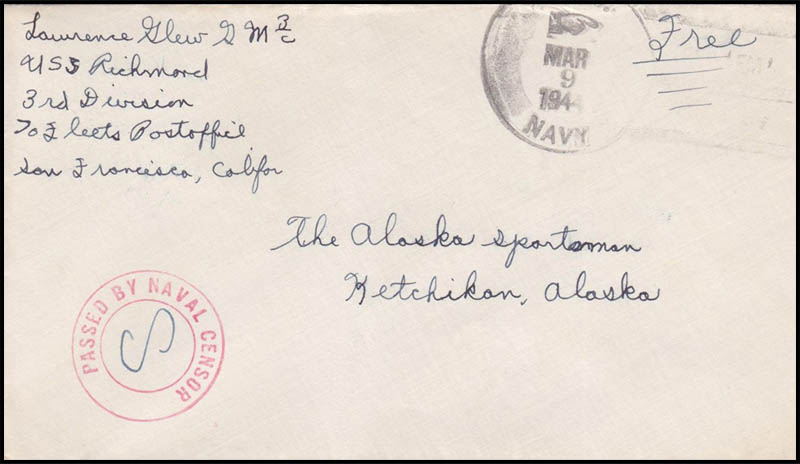 Lawrence Glew G M 3/c
USS Richmond
3rd Division
% Fleets Postoffice
San Francisco, Califor
MAR
9
1944
NAVY
Free
The Alaska Sportsman
Ketchikan, Alaska
PASSED BY NAVAL CENSOR
S